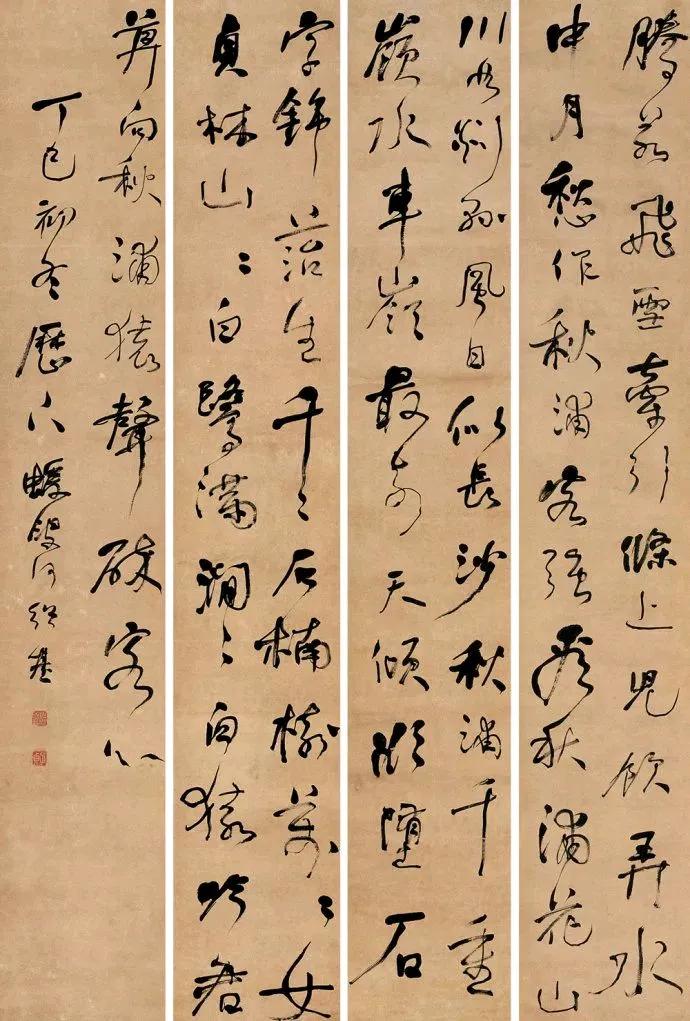 騰若飛雪牽引條上兒飲弄水
中月愁作秋浦客強看秋浦花山
川如剡縣風日似長沙秋浦千重
嶺水車嶺最奇天傾欲墮石
字錦苔生千〻石楠樹萬〻女
貞林山〻白鷺滿澗〻白猿吟君
莫向秋浦猿聲碎客心
丁巳初冬歷下蝯叟何紹基